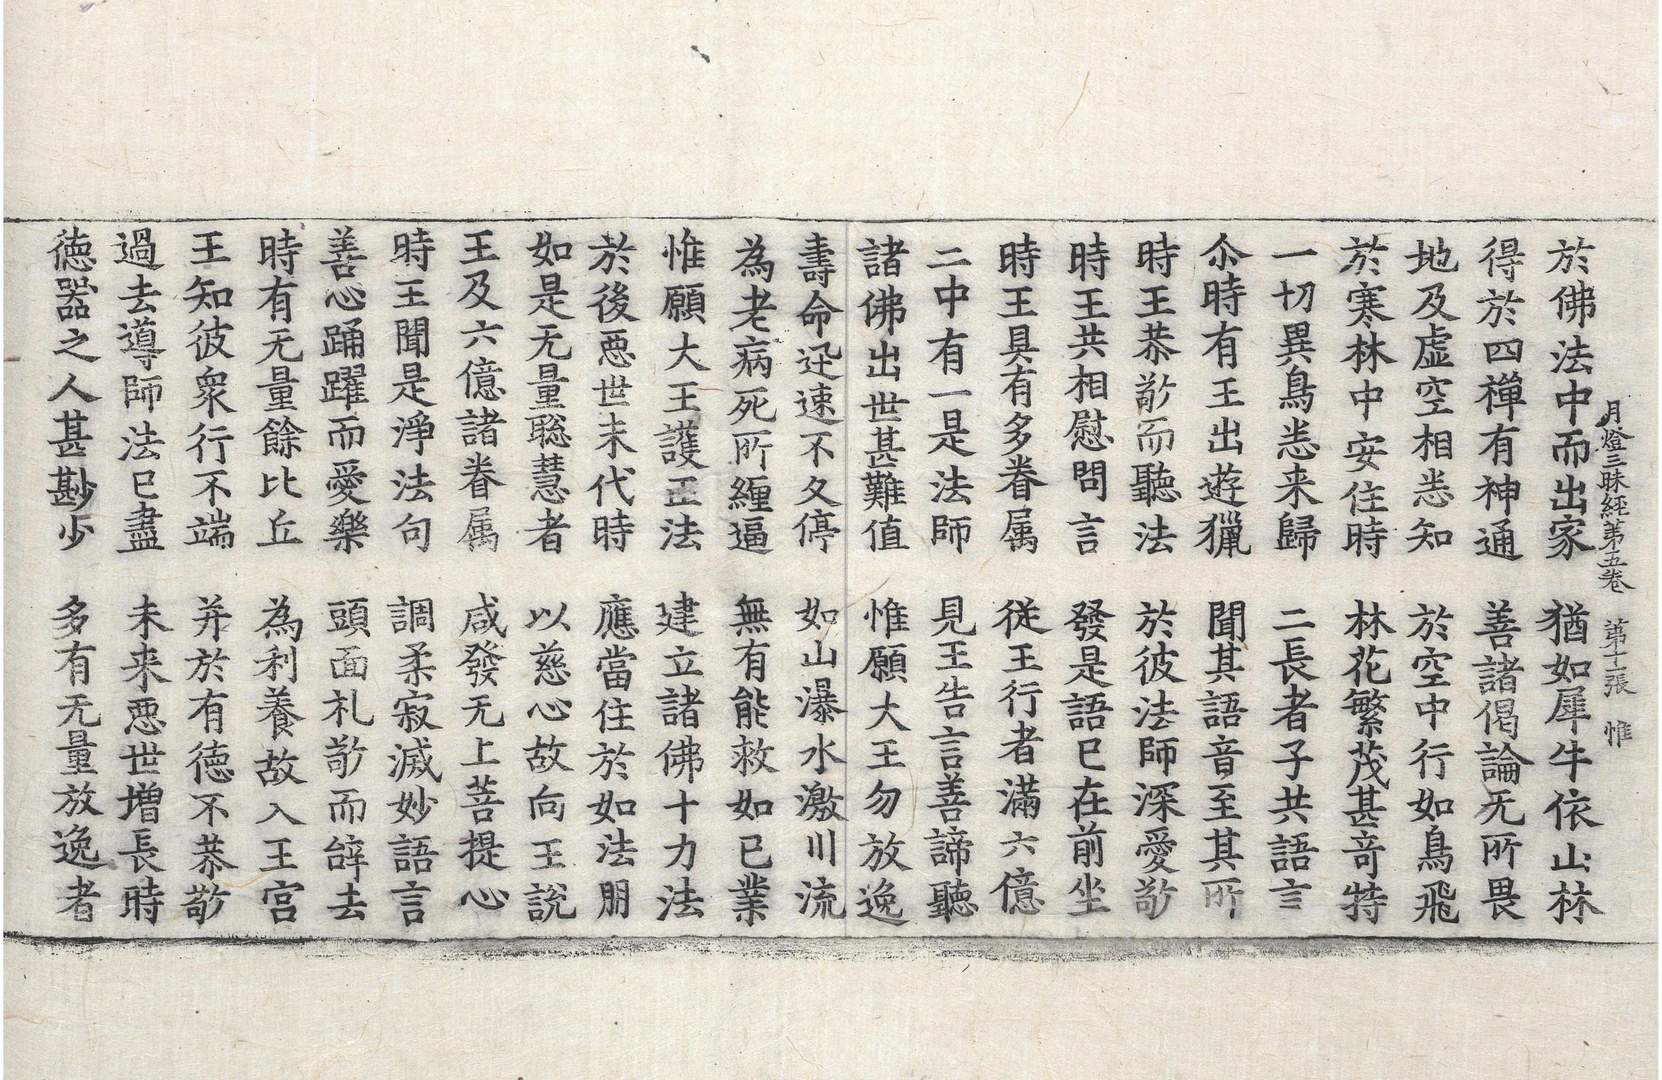 月燈三昧經第五卷 第十張 惟
於佛法中而出家 猶如犀牛依山林
得於四禪有神通 善諸偈論无所畏
地及虛空相悉知 於空中行如鳥飛
於寒林中安住時 林花繁茂甚竒特
一切異鳥悉来歸 二長者子共語言
尒時有王出遊獵 聞其語音至其所
時王恭敬而聽法 於彼法師深愛敬
時王共相慰問言 發是語已在前坐
時王具有多眷属 従王行者滿六億
二中有一是法師 見王告言善諦聽
諸佛出世甚難值 惟願大王勿放逸
壽命迅速不久停 如山瀑水激川流
為老病死所纏逼 無有能救如已業
惟願大王護正法 建立諸佛十力法
於後惡世末代時 應當住於如法朋
如是无量聡慧者 以慈心故向王說
王及六億諸眷属 咸發无上菩提心
時王聞是淨法句 調柔寂滅妙語言
善心踊躍而愛樂 頭面礼敬而辝去
時有无量餘比丘 為利養故入王宫
王知彼衆行不端 并於有德不恭敬
過去導師法已盡 未来惡世增長時
德器之人甚尠少 多有无量放逸者